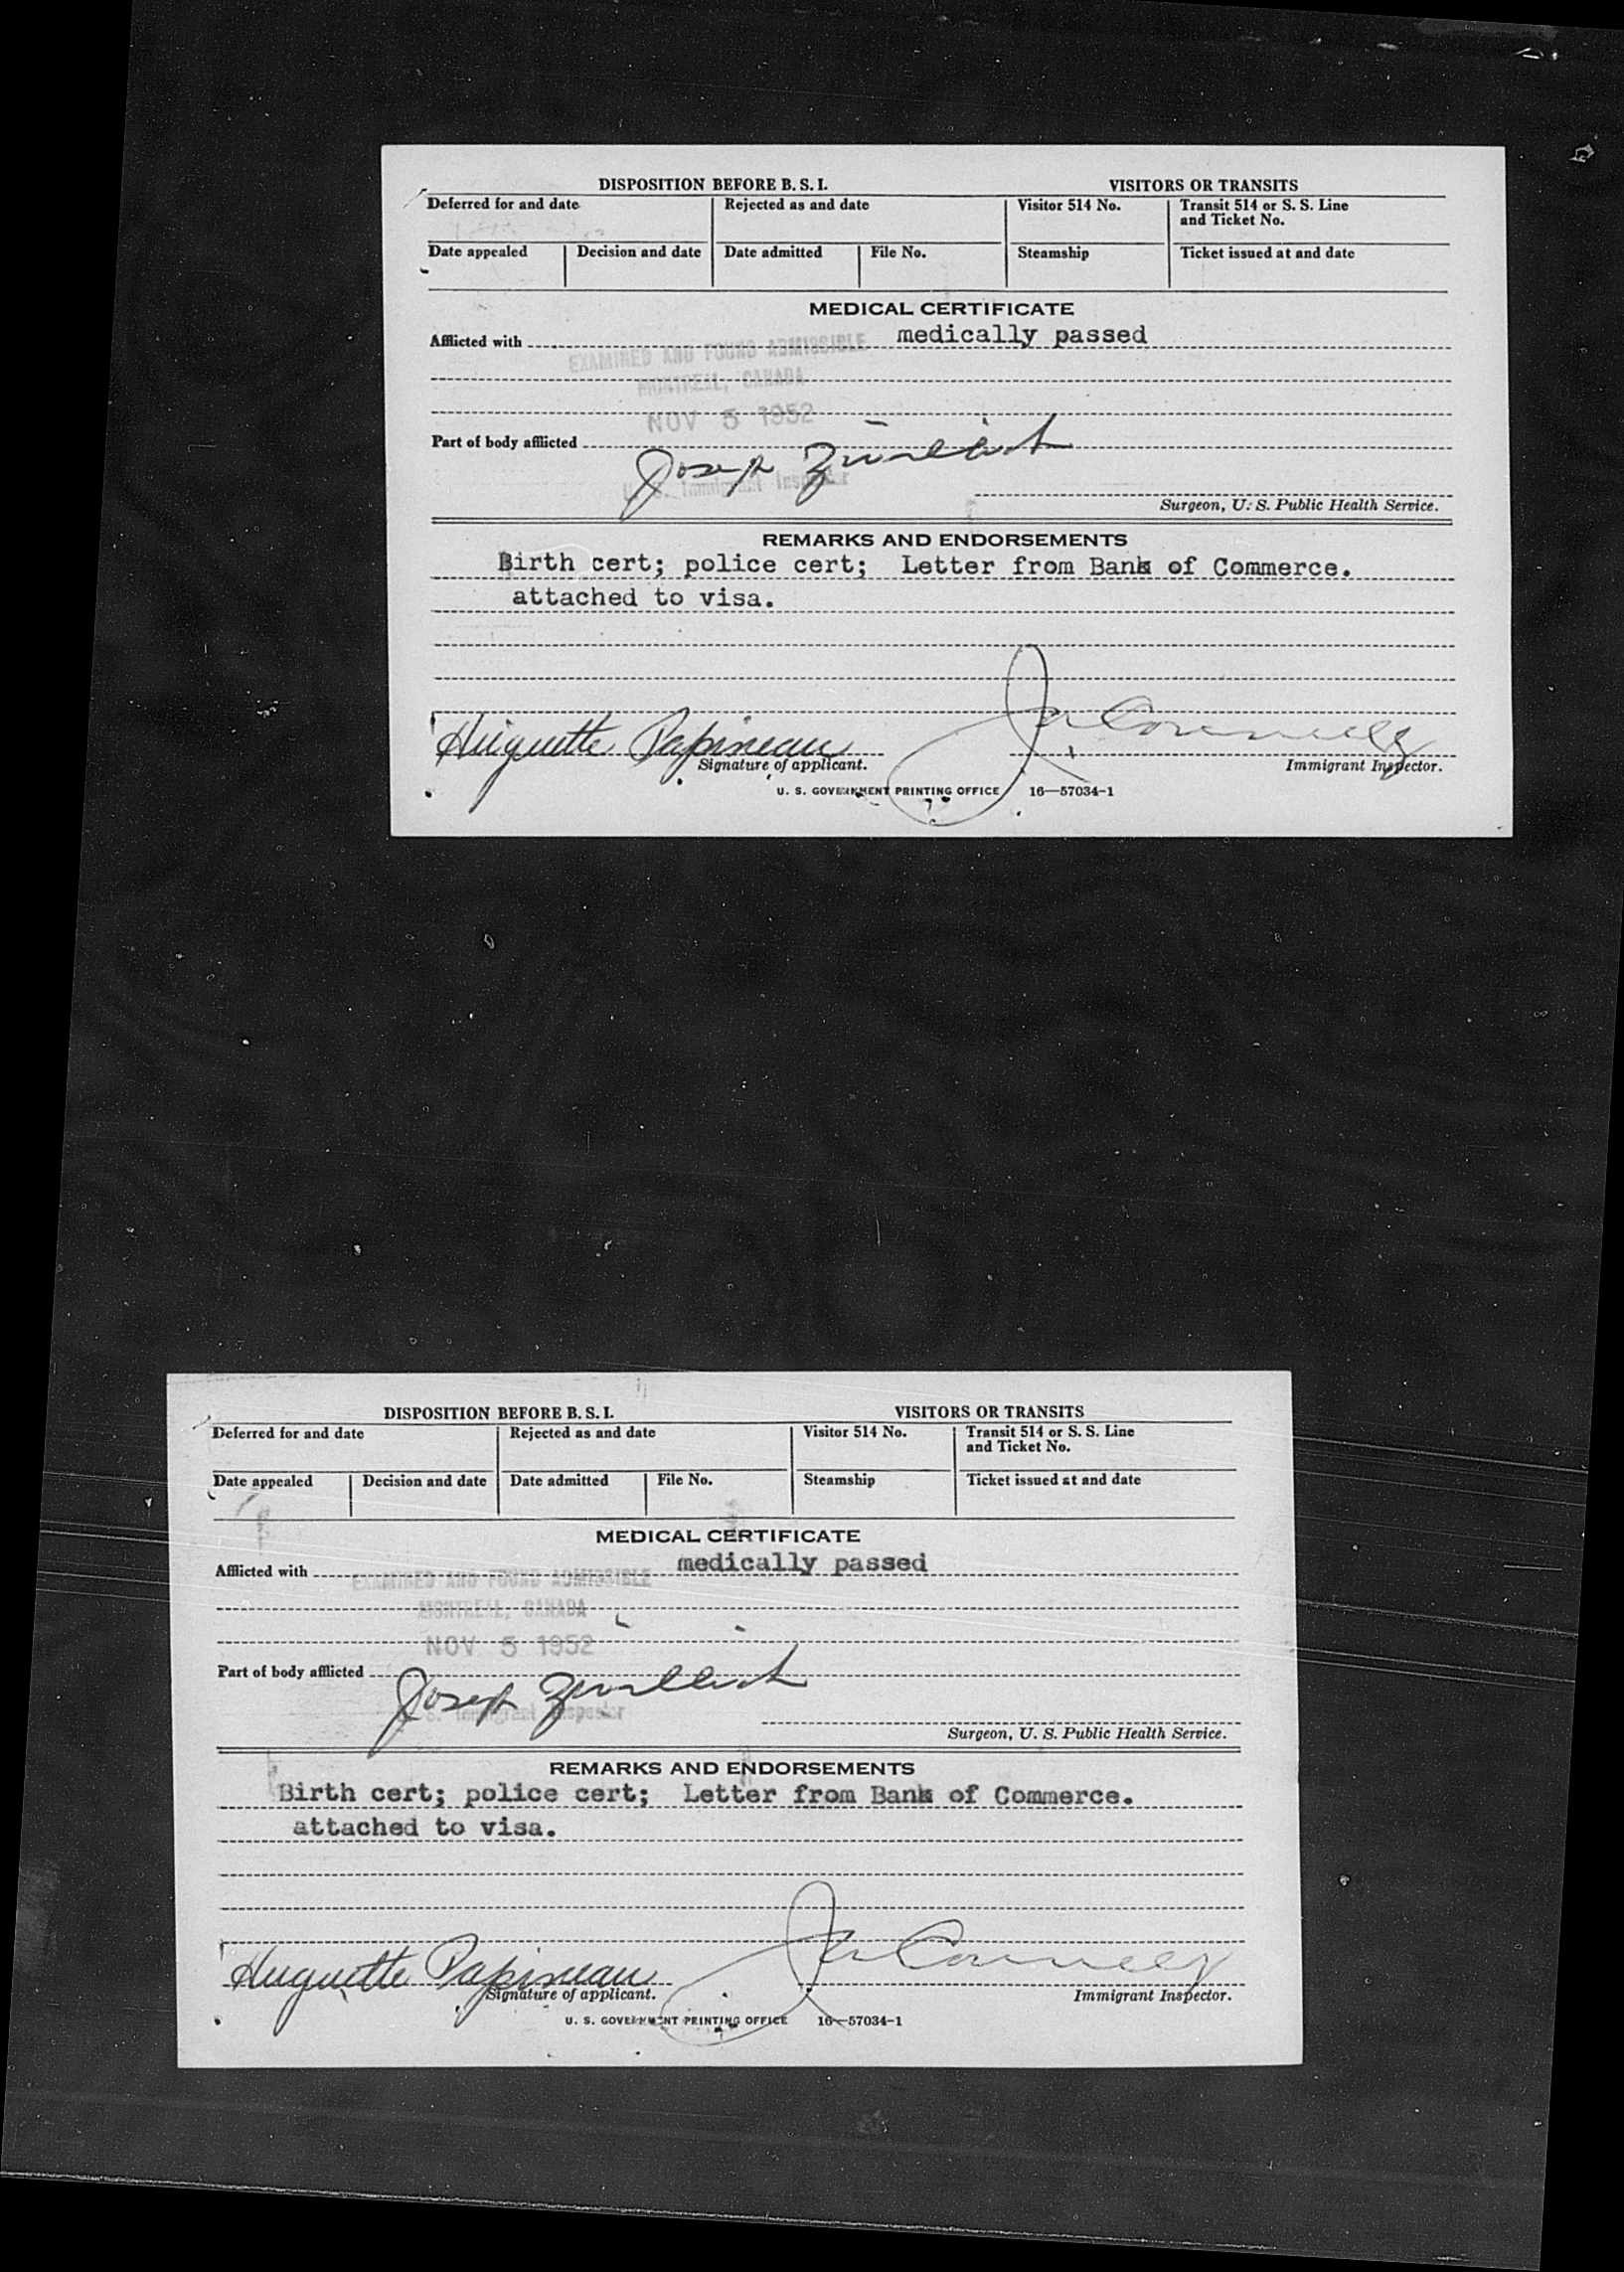 DISPOSITION BEFORE B. S. I.
VISITORS OR TRANSITS
Deferred for and date
Rejected as and date
Visitor 514 No.
Transit 514 or S. S. Line
and Ticket No.
Date appealed
Decision and date
Date admitted
File No.
Steamship
Ticket issued at and date
MEDICAL CERTIFICATE
Afflicted with medically passed
EXAMINED AND FOUND ADMISSIBLE
MONTREAL, CANADA
NOV 5 1952
Part of body afflicted
Joseph
U. S. Immigrant Inspector
Surgeon, U. S. Public Health Service.
REMARKS AND ENDORSEMENTS
Birth cert; police cert; Letter from Bank of Commerce.
attached to visa.
Huguette Papineau
Signature of applicant.
Immigrant Inspector.
U. S. GOVERNMENT PRINTING OFFICE 16—57034-1
DISPOSITION BEFORE B. S. I.
VISITORS OR TRANSITS
Deferred for and date
Rejected as and date
Visitor 514 No.
Transit 514 or S. S. Line
and Ticket No.
Date appealed
Decision and date
Date admitted
File No.
Steamship
Ticket issued at and date
MEDICAL CERTIFICATE
Afflicted with medically passed
EXAMINED AND FOUND ADMISSIBLE
MONTREAL, CANADA
NOV 5 1952
Part of body afflicted
Joseph
S. Immigrant Inspector
Surgeon, U. S. Public Health Service.
REMARKS AND ENDORSEMENTS
Birth cert; police cert; Letter from Bank of Commerce.
attached to visa.
Huguette Papineau
Signature of applicant.
Immigrant Inspector.
U. S. GOVERNMENT PRINTING OFFICE 16—57034-1